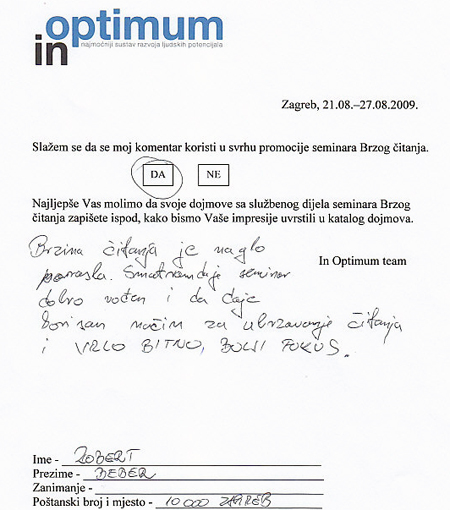 in optimum
najmoćniji sustav razvoja ljudskih potencijala
Zagreb, 21.08.–27.08.2009.
Slažem se da se moj komentar koristi u svrhu promocije seminara Brzog čitanja.
DA NE
Najljepše Vas molimo da svoje dojmove sa službenog dijela seminara Brzog
čitanja zapišete ispod, kako bismo Vaše impresije uvrstili u katalog dojmova.
In Optimum team
Brzina čitanja je naglo
porasla. Smatram da je seminar
dobro vođen i da daje
koristan način za ubrzavanje čitanja
i VRLO BITNO, BOLJI FOKUS.
Ime - ROBERT
Prezime - BEBER
Zanimanje -
Poštanski broj i mjesto - 10 000 ZAGREB